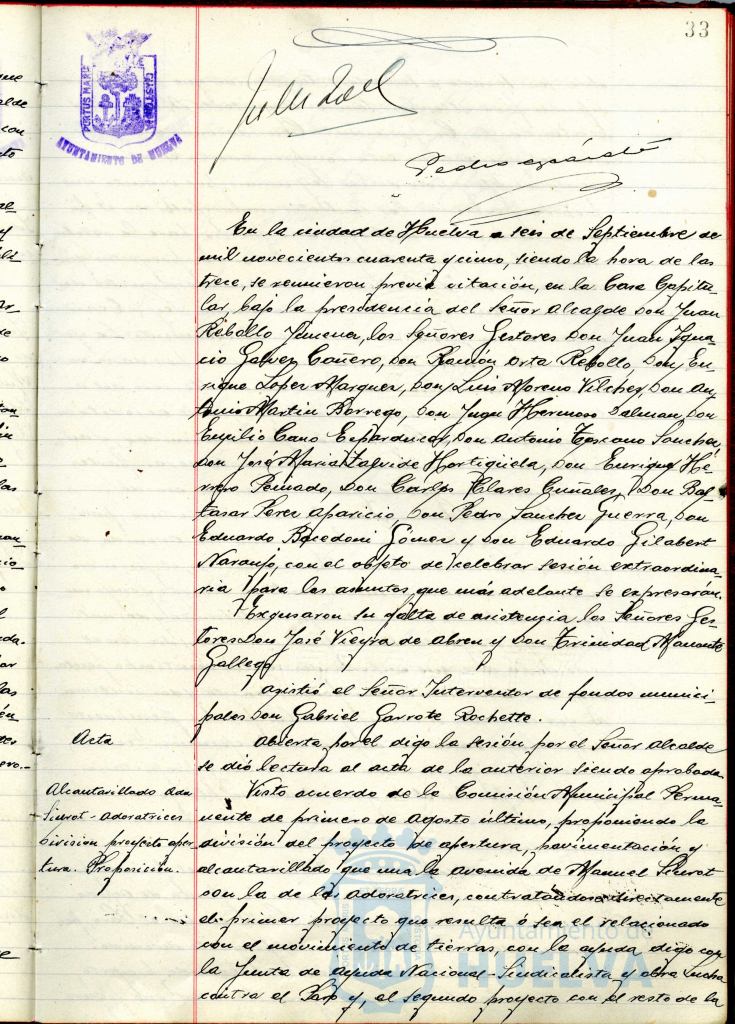 33
PORTUS MARIS
CUSTODIA
AYUNTAMIENTO DE HUELVA
Pedro
En la ciudad de Huelva a seis de Septiembre de
mil novecientos cuarenta y cinco, siendo la hora de las
trece, se reunieron previa citación, en la Casa Capitu-
lar, bajo la presidencia del Señor Alcalde Don Juan
Rebollo Jimenez, los Señores Gestores Don Juan Igna-
cio Galvez Cañero, Don Ramón Orta Rebollo, Don En-
rique Lopez Marquez, Don Luis Moreno Vilchez, Don An-
tonio Martin Borrego, Don Juan Hermoso Dalman, Don
Emilio Cano Enparducer, Don Antonio Toscano Sanchez,
Don José Maria Zalvide Hortigüela, Don Enrique He-
rrero Peinado, Don Carlos Vilares Cuñales, Don Bal-
tasar Perez Aparicio, Don Pedro Sanchez Guerra, Don
Eduardo Bocedoni Gómez y Don Eduardo Gilabert
Naranjo, con el objeto de celebrar sesión extraordina-
ria para los asuntos que más adelante se expresarán.
Excusaron su falta de asistencia los Señores Ges-
tores Don José Vieyra de Abreu y Don Trinidad
Gallego
Asistió el Señor Interventor de fondos munici-
pales Don Gabriel Garrote Rochette.
Acta
Abierta por el digo la sesión por el Señor Alcalde
se dió lectura al acta de la anterior siendo aprobada
Alcantarillado Ada
Siurot-Adoratrices
División proyecto aper-
tura. Proposición.
Visto acuerdo de la Comisión Municipal Perma-
nente de primero de Agosto último, proponiendo la
división del proyecto de apertura, pavimentación y
alcantarillado que una la avenida de Manuel Siurot
con la de las Adoratrices, contratandose directamente
el primer proyecto que resulta ó sea el relacionado
con el movimiento de tierras, con la ayuda digo con
la Junta de Ayuda Nacional-Sindicalista y obra Lucha
contra el Paro y, el segundo proyecto con el resto de la
Ayuntamiento de
HUELVA